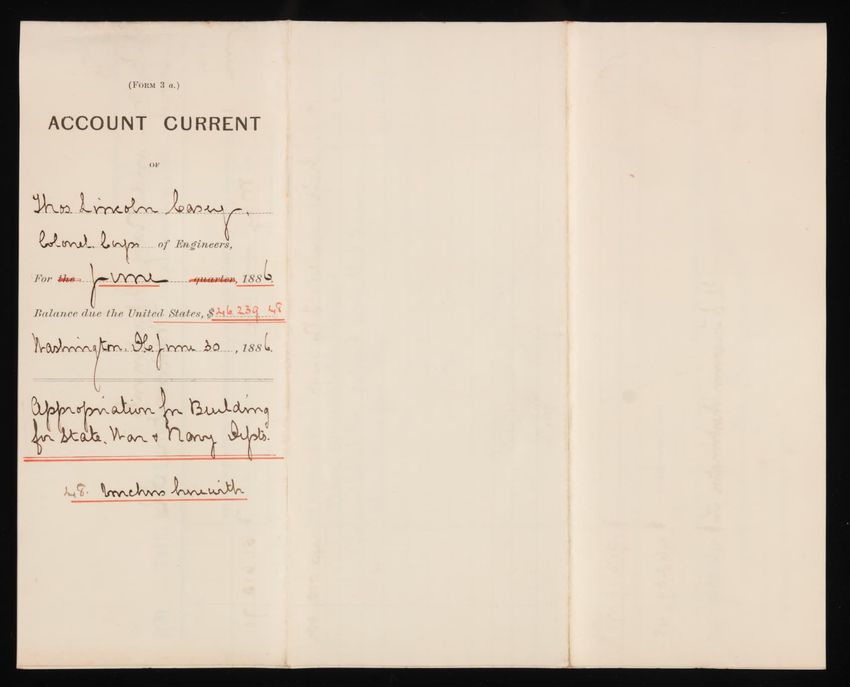 (FORM 3 a.)
ACCOUNT CURRENT
OF
Thos Lincoln Casey,
Colonel. Corps of Engineers,
For the June quarter, 1886
Balance due the United States, $46 239 48
Washington. DC June 30, 1886.
Appropriation for Building
for State, War & Navy Depts.
48. Vouchers herewith